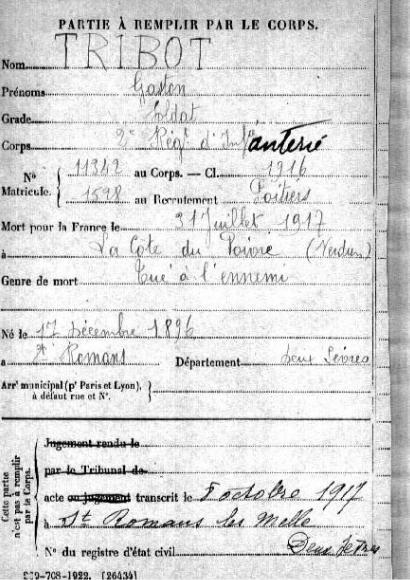 PARTIE À REMPLIR PAR LE CORPS.
Nom TRIBOT
Prénoms Gaston
Grade Soldat
Corps 2e Régt d'Infanterie
Nº 11342 au Corps. — Cl. 1916
Matricule. 1598 au Recrutement Poitiers
Mort pour la France le 31 Juillet 1917
à La Côte du Poivre (Verdun)
Genre de mort Tué à l'ennemi
Né le 17 Décembre 1896
à St Romans Département Deux Sèvres
Arrt municipal (pr Paris et Lyon),
à défaut rue et Nº.
Cette partie
n'est pas à remplir
par le Corps.
Jugement rendu le
par le Tribunal de
acte ou jugement transcrit le 8 octobre 1917
à St Romans les Melle
Deux Sèvres
Nº du registre d'état civil
-708-1922. [26434]